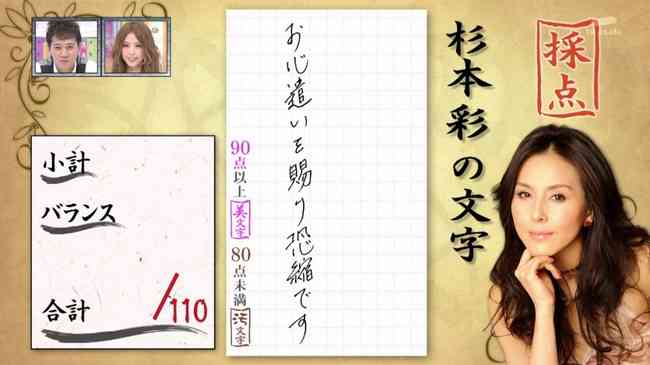 採点
杉本彩の文字
お心遣いを賜り恐縮です
90点以上
美文字
80点未満
汚文字
小計
バランス
合計
/110